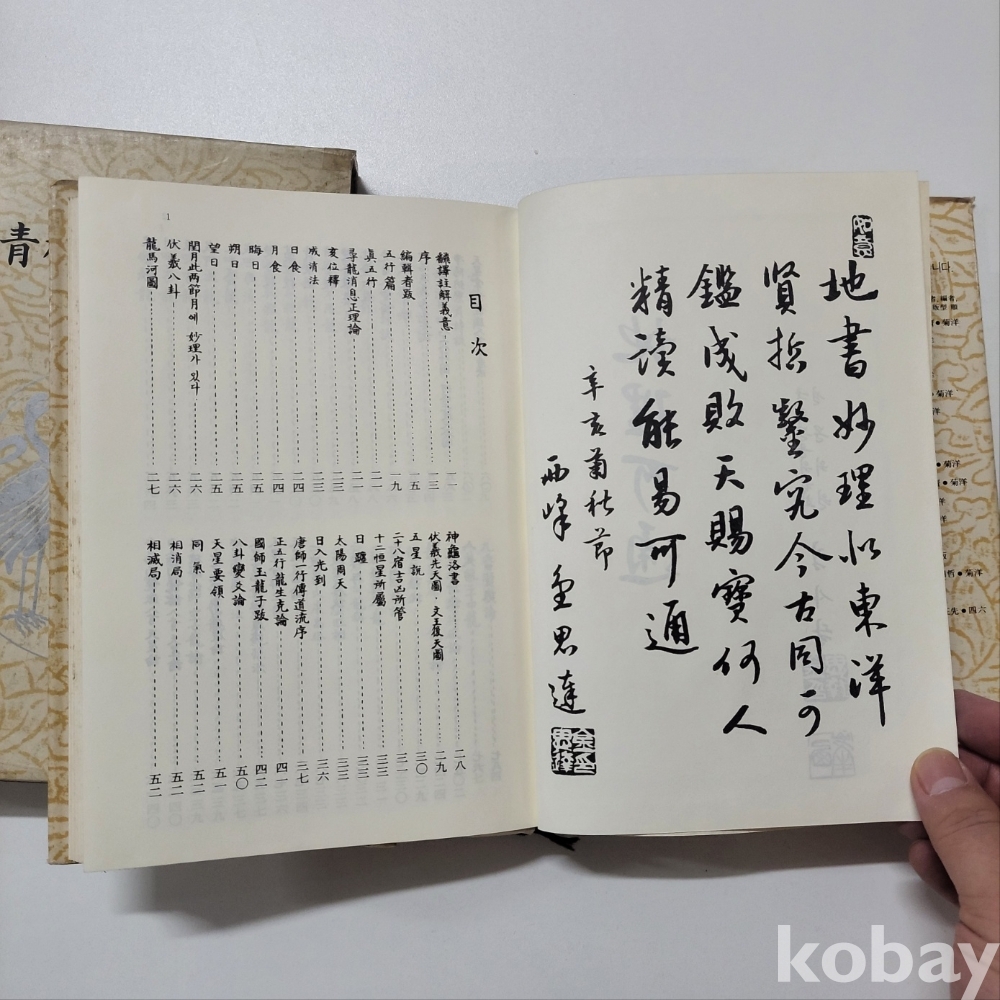 知意
地書妙理似東洋
賢哲鑿究今古同可
鑑成敗天賜寶何人
精讀能易可通
辛亥菊秋節
西峰 金思達
金思達印
目次
飜譯註解義意 一
序 一三
編輯者跋 一五
五行篇 一九
眞五行 二一
尋龍消息正理論 二一
亥位釋 二二
成消法 二三
日食 二四
月食 二四
晦日 二五
朔日 二五
望日 二五
閏月此两節月에 妙理가 있다 二六
伏羲八卦 二六
龍馬河圖 二七
神龜洛書 二八
伏羲先天圖·文王後天圖 二九
五星説 三〇
二十八宿吉凶所管 三一
十二恒星所屬 三三
日躔 三三
太陽周天 三三
日入光到 三六
唐師一行傳道流序 三七
正五行龍生克論 四一
國師玉龍子跋 四二
八卦變爻論 五〇
天星要領 五一
同氣 五二
相消局 五二
相滅局 五二
1
靑
니다
菊洋
菊洋
菊洋
四六
kobay